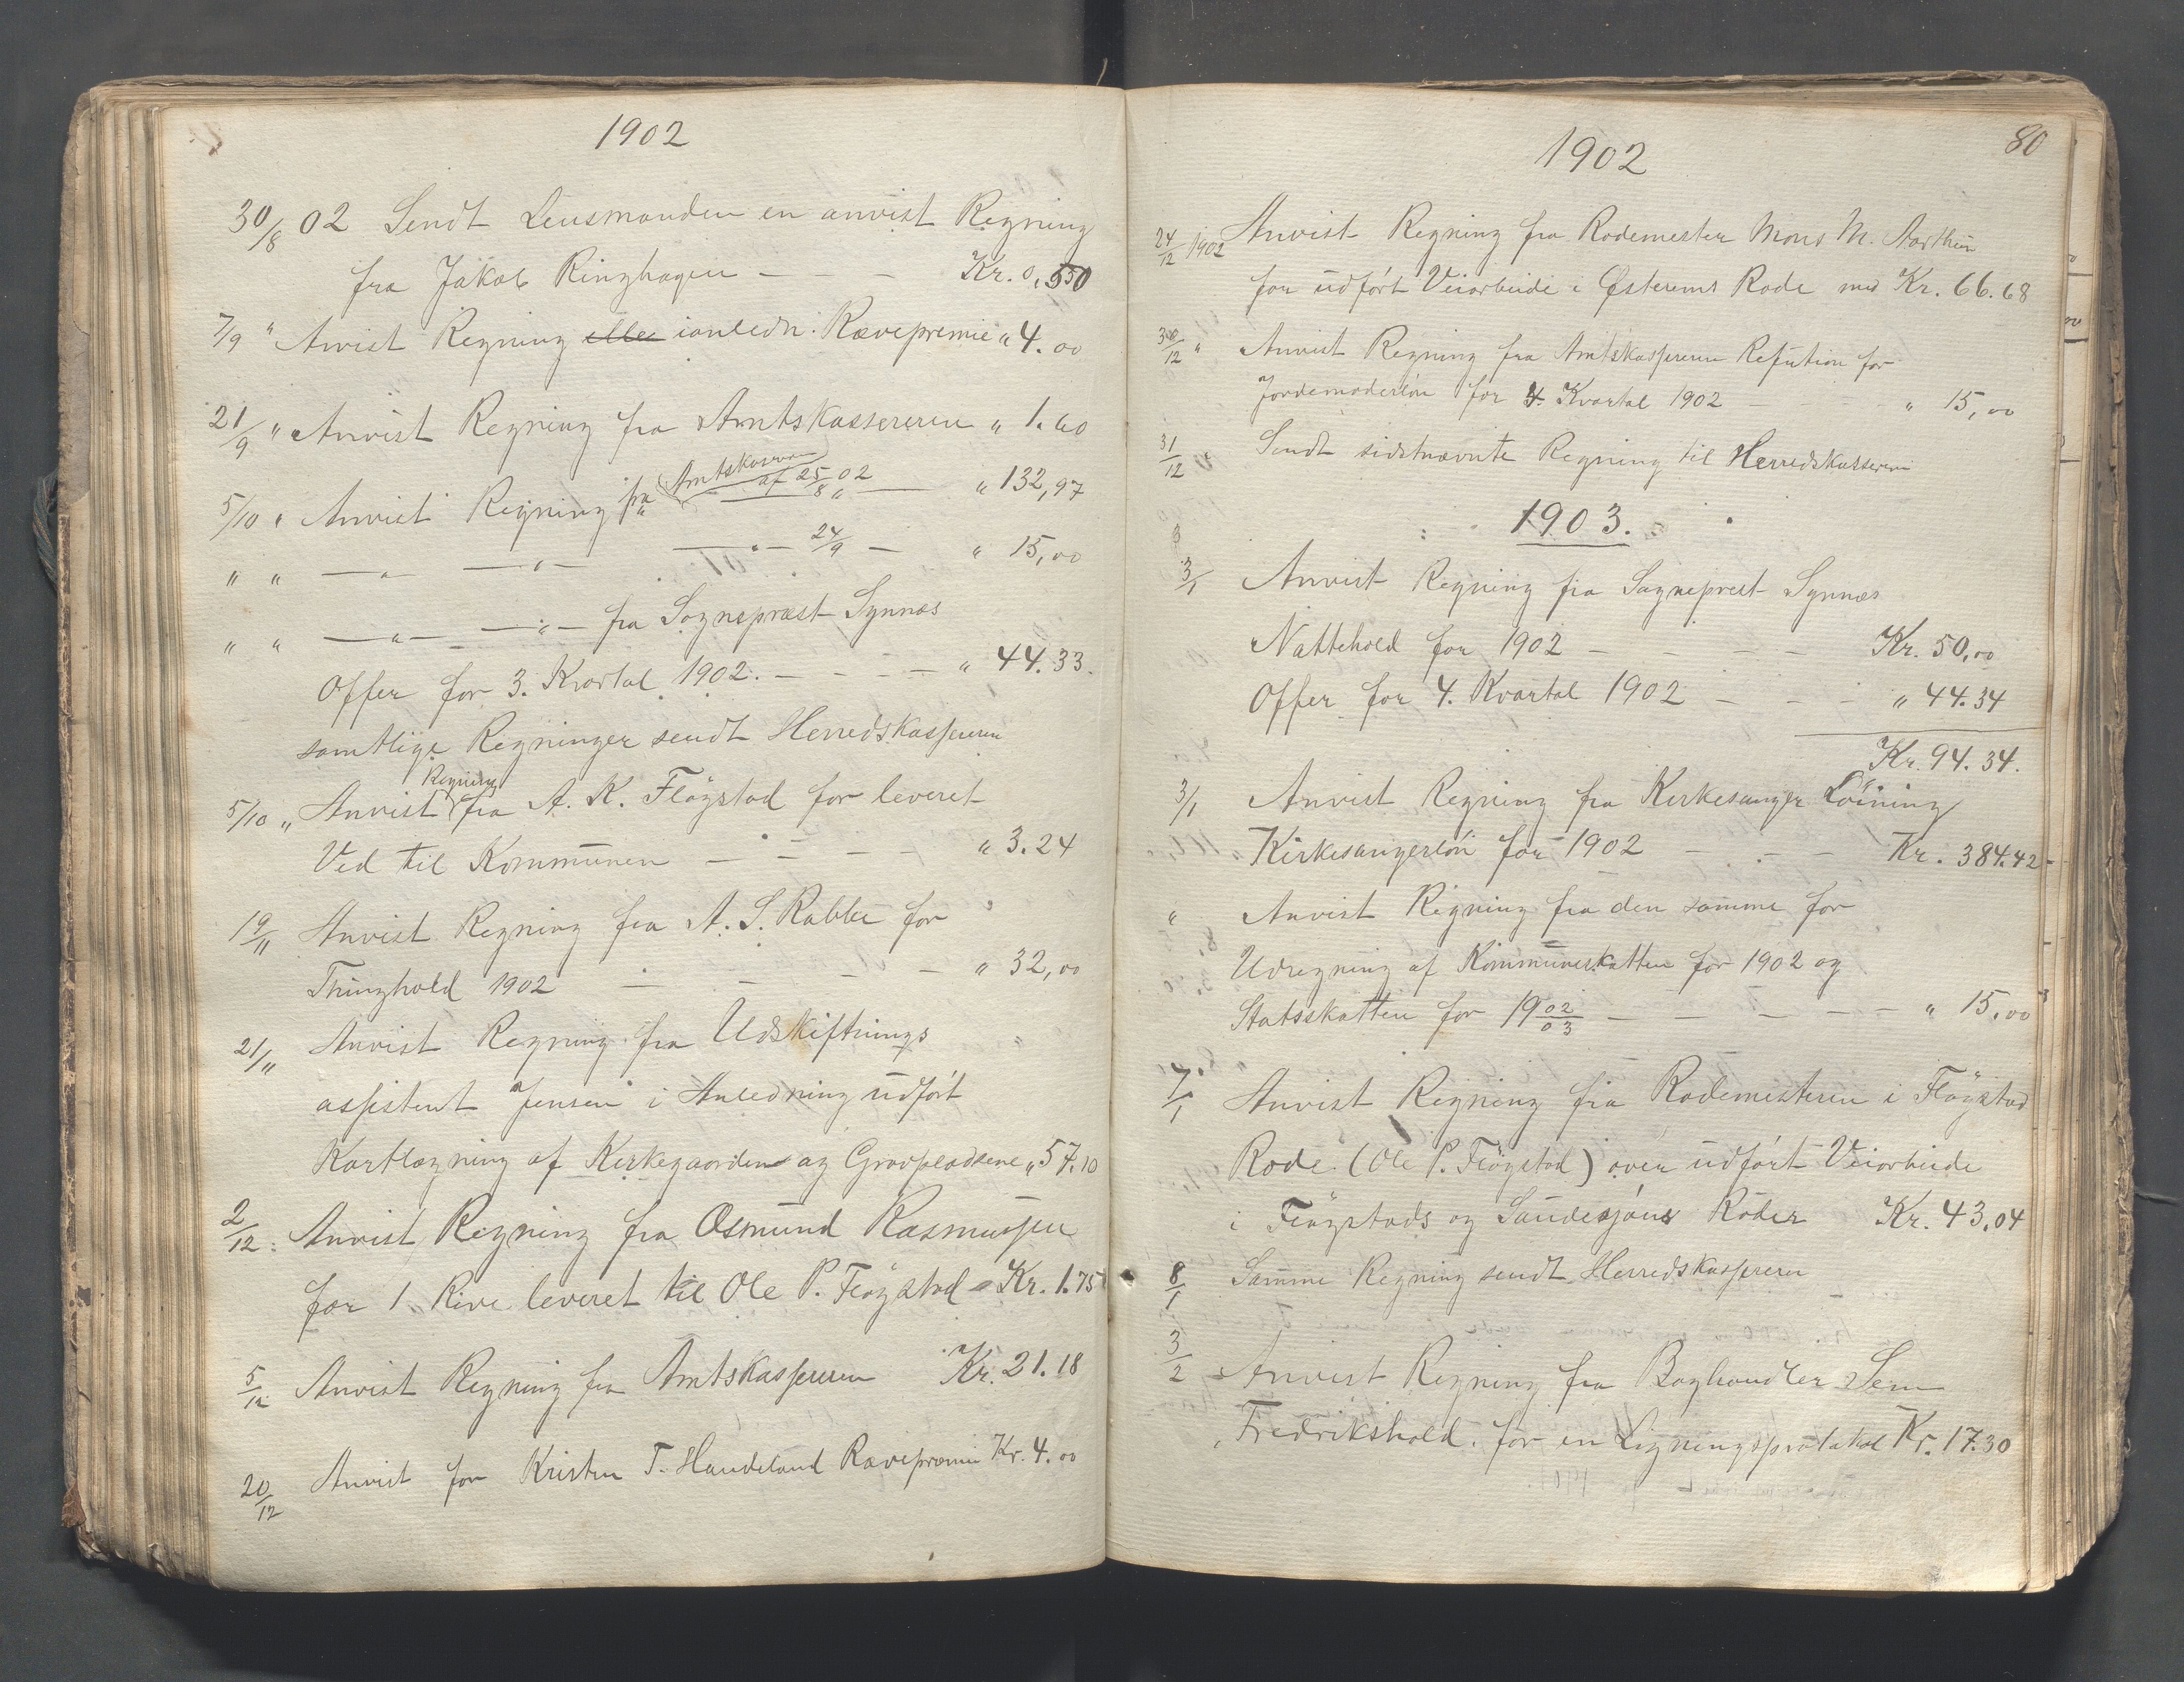 1902
30/8 02 Sendt Lensmanden en anvist Regning
fra Jakob Ringhagen — — — Kr. 0,550
7/9 " Anvist Regning eller ianledn. Rævepremie " 4.00
21/9 " Anvist Regning fra Amtskassereren " 1.60
5/10 " Anvist Regning fra Amtskasserer af 25/8 02 — " 132,97
" " —"— —"— —"— 24/9 — " 15,00
" " —"— —"— fra Sognepræst Synnæs
Offer for 3. Kvartal 1902. — — — — " 44.33.
samtlige Regninger sendt Herredskassereren
5/10 " Anvist Regning fra A. K. Flögstad for leveret
Ved til Kommunen — — — — " 3.24
19/11 Anvist Regning fra A. S. Rabbe for
Thinghold 1902 — — — — " 32,00
21/11 Anvist Regning fra Udskiftnings
assistent Jensen i Anledning udført
Kartlægning af Kirkegaarden og Gravpladsene " 57.10
2/12 : Anvist Regning fra Osmund Rasmussen
for 1 Rive leveret til Ole P. Flögstad - Kr. 1.75
5/12 Anvist Regning fra Amtskassereren Kr. 21.18
20/12 Anvist for Kristen T. Handeland Rævepræmie Kr. 4.00
80
1902
24/12 1902 Anvist Regning fra Rodemester Mons M. Aarthun
for udført Veiarbeide i Østerems Rode med Kr. 66.68
30/12 " Anvist Regning fra Amtskassereren Refution for
Jordemoderløn for 4. Kvartal 1902 — — — " 15,00
31/12 " Sendt sidstnævnte Regning til Herredskassereren
1903.
3/1 Anvist Regning fra Sogneprest Synnæs
Nattehold for 1902 — — — — Kr. 50,00
Offer for 4. Kvartal 1902 — — — " 44.34
Kr. 94.34.
3/1 Anvist Regning fra Kirkesanger Løining
Kirkesangerløn for 1902 — — — Kr. 384.42
" Anvist Regning fra den samme for
Udregning af Kommuneskatten for 1902 og
Statsskatten for 1902/03 — — — — — " 15,00
7/1 Anvist Regning fra Rodemesteren i Flögstad
Rode (Ole P. Flögstad) over udført Veiarbeide
i Flögstads og Sandesjöens Roder Kr. 43.04
8/1 Samme Regning sendt Herredskassereren
3/2 Anvist Regning fra Boghandler Sem
Fredrikshald for en Ligningsprotokol Kr. 17.30